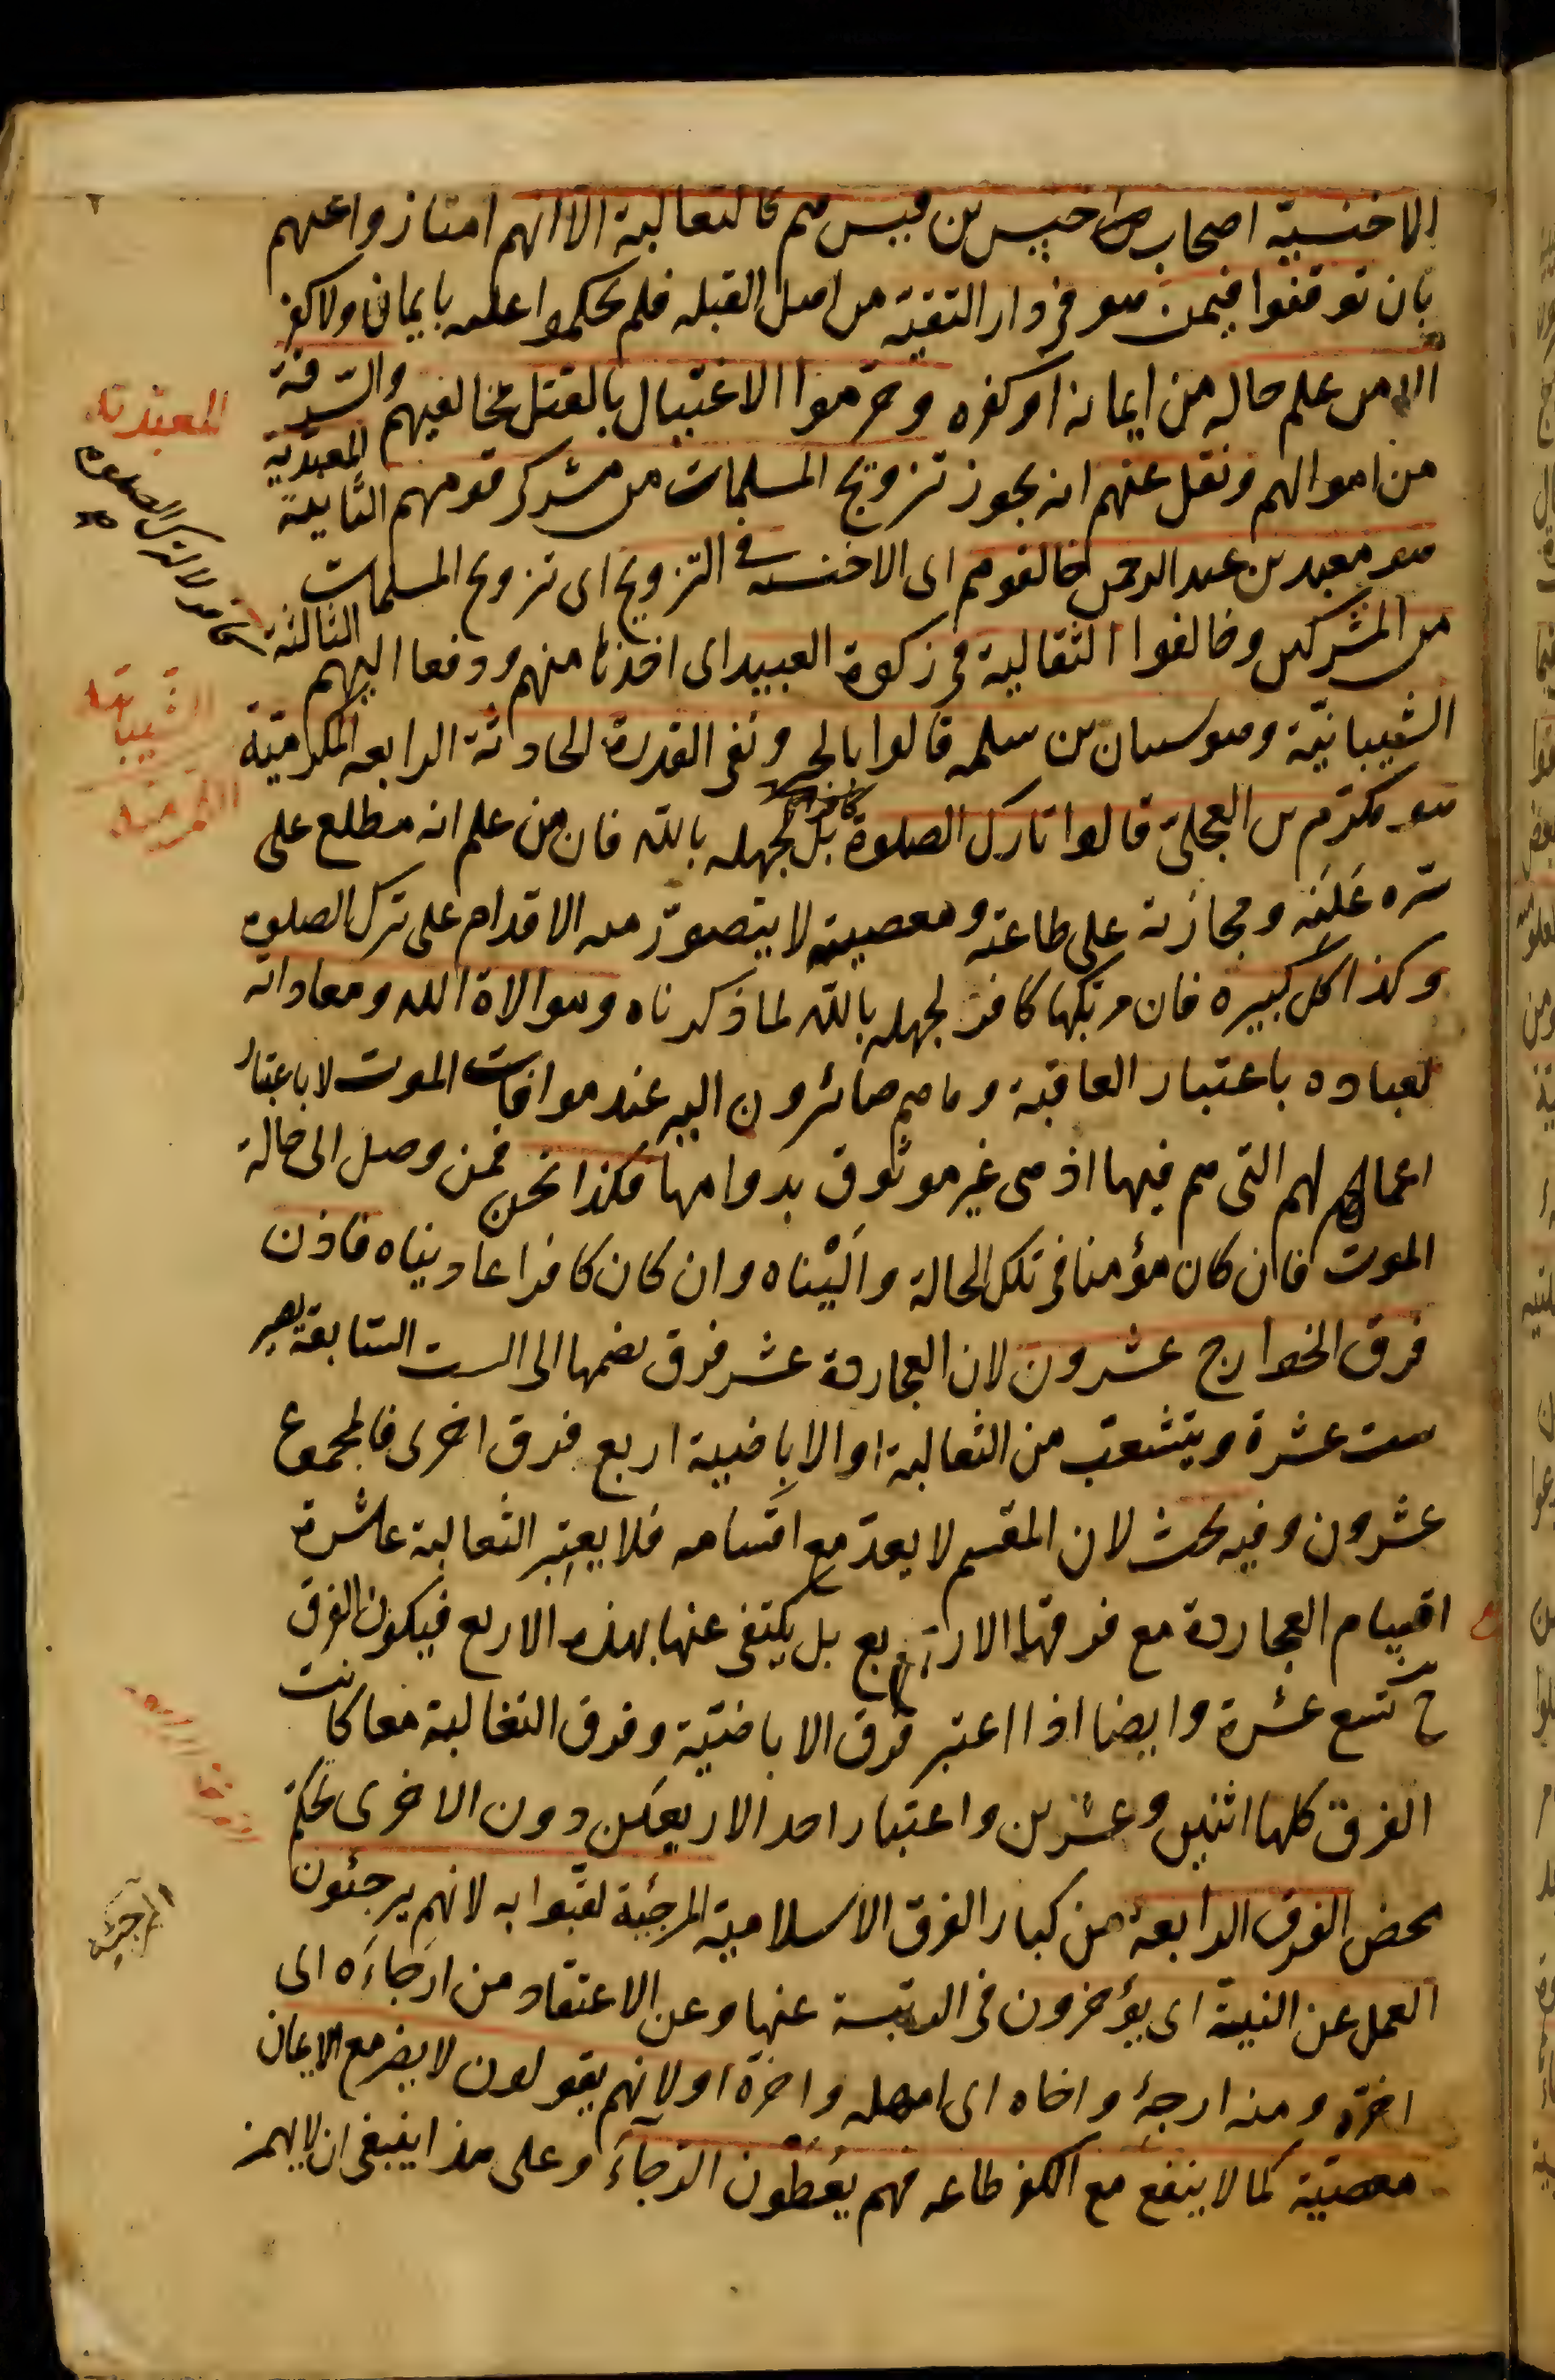 الاخنسية اصحاب اخنس بن قيس هم كالثعالبة الا انهم امتازوا عنهم
بان توقفوا فيمن هو فى دار التقية من اهل القبله فلم يحكموا عليه بايمان ولا كفر
الا من علم حاله من ايمانه او كفره وحرموا الاغتيال بالقتل مخالفيهم والسرقة
من اموالهم ونقل عنهم انه يجوز تزويج المسلمات من مشركى قومهم الثانية المعبدية
هو معبد بن عبد الرحمن خالفوهم اى الاخنسيه فى التزويج اى تزويج المسلمات
من المشركين وخالفوا الثعالبة فى زكوة العبيد اى اخذها منهم ودفعها اليهم الثالثة
الشيبانيّة وهو شيبان بن سلمه قالوا بالجبر ونفى القدرة الحادثة الرابعه المكرمية
هو مكرم بن العجلى قالوا تارك الصلوة كافر بل لجهله بالله فان من علم انه مطلع على
سره وعلنه ومجازيه على طاعته ومعصيته لا يتصوّر منه الاقدام على ترك الصلوه
وكذا كل كبيره فان مرتكبها كافر لجهله بالله لما ذكرناه وموالاة الله ومعاداته
لعباده باعتبار العاقبة وما هم صائرون اليه عند موافات الموت لا باعتبار
اعمالهم التى هم فيها اذ هى غير موثوق بدوامها فكذا نحن فمن وصل الى حالة
الموت فان كان مؤمنا فى تلك الحالة واليناه وان كان كافرا عاديناه فاذن
فرق الخوارج عشرون لان العجاردة عشر فرق بضمها الى الست السابقة يصير
ست عشرة ويتشعب من الثعالبة او الاباضية اربع فرق اخرى فالمجموع
عشرون وفيه بحث لان المقسم لا يعدّ مع اقسامه فلا يعتبر الثعالبة عاشرة
اقسام العجاردة مع فرقها الاربع بل يكتفى عنها بهذه الاربع فيكون الفرق
ح تسع عشرة وايضا اذا اعتبر فرق الاباضيّة وفرق الثعالبة معا كانت
الفرق كلها اثنين وعشرين واعتبار احد الاربعين دون الاخرى تحكم
محض الفرق الرابعة من كبار الفرق الاسلامية المرجئة لقبوا به لانهم يرجئون
العمل عن النية اى يؤخرون فى الرتبة عنها وعن الاعتقاد من ارجاءه اى
اخره ومنه ارجئه واخاه اى امهله واخره او لانهم يقولون لا يضر مع الايمان
معصية كما لا ينفع مع الكفر طاعه فهم يعطون الرجاء وعلى هذا ينبغى ان لا يهمز
المعبدية
كافر لا لترك الصلوه
الشيبانية
المكرمية
المرجئه